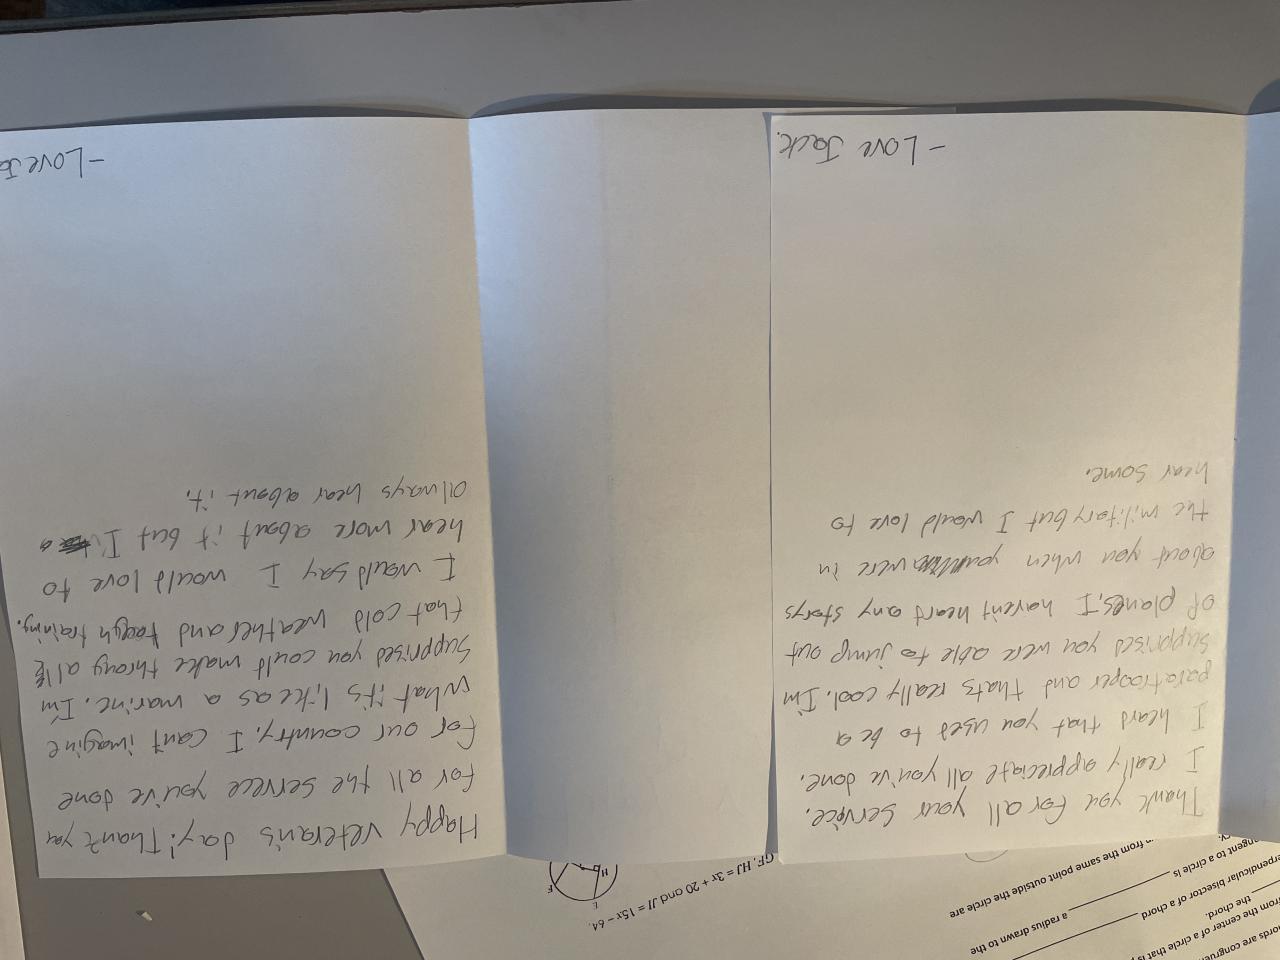 Thank you for all your service.
I really appreciate all you've done.
I heard that you used to be a
paratrooper and thats really cool. I'm
supprised you were able to jump out
of planes, I havent heard any storys
about you when you were in
the military but I would love to
hear some.
- Love Jack.
Happy veteran's day! Thank you
for all the servece you've done
for our country, I can't imagine
what it's like as a marine. I'm
supprised you could make throug all
that cold weather and tough training.
I would say I would love to
hear more about it but I
always hear about it.
- Love Ja
ords are congruen
from the center of a circle that is
the chord.
erpendicular bisector of a chord
a radius drawn to the
angent to a circle is
from the same point outside the circle are
GF, HJ = 3x + 20 and JI = 15x - 64.
H
F
I